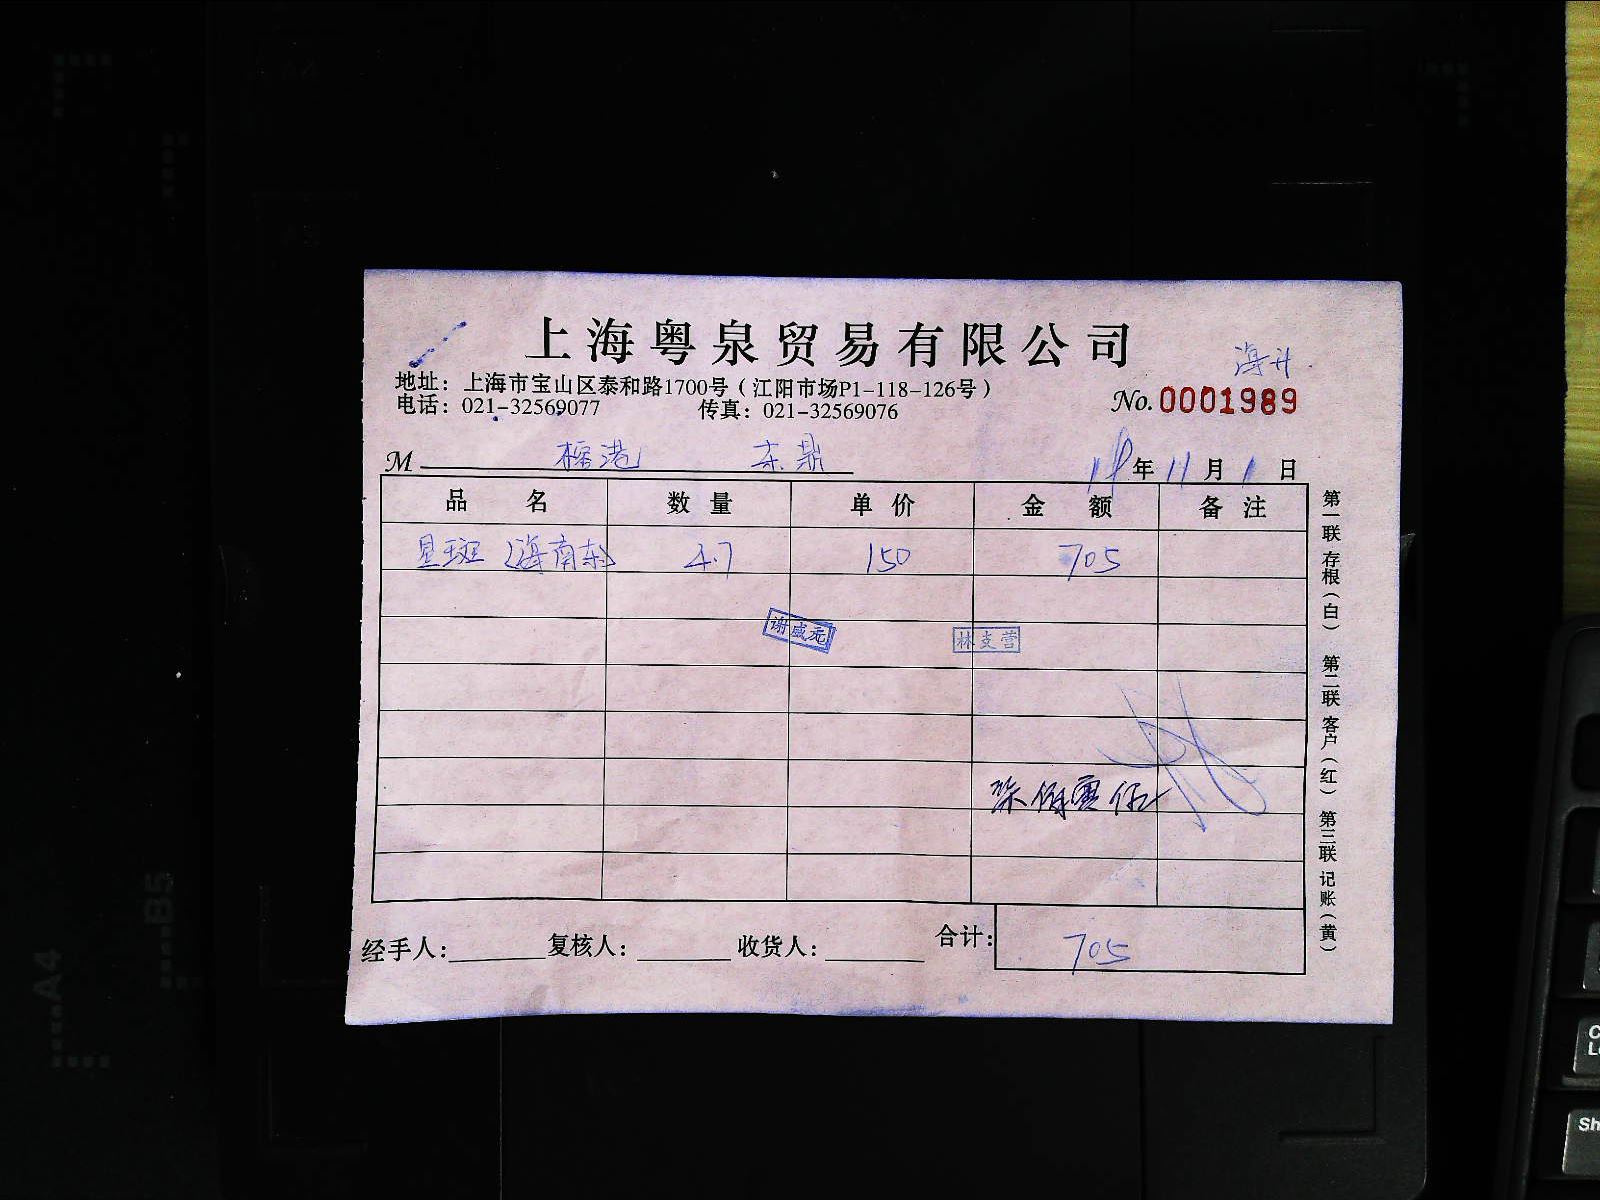 上海粤泉贸易有限公司
海升
地址：上海市宝山区泰和路1700号（江阳市场P1-118-126号）
电话：021-32569077 传真：021-32569076
No.0001989
M 港 东鼎
年 11 月 1 日
品名 数量 单价 金额 备注
星斑（海南东） 4.7 150 705
谢盛元
林支营
经手人： 复核人： 收货人： 合计： 705
第一联 存根（白） 第二联 客户（红） 第三联 记账（黄）
A4
B5